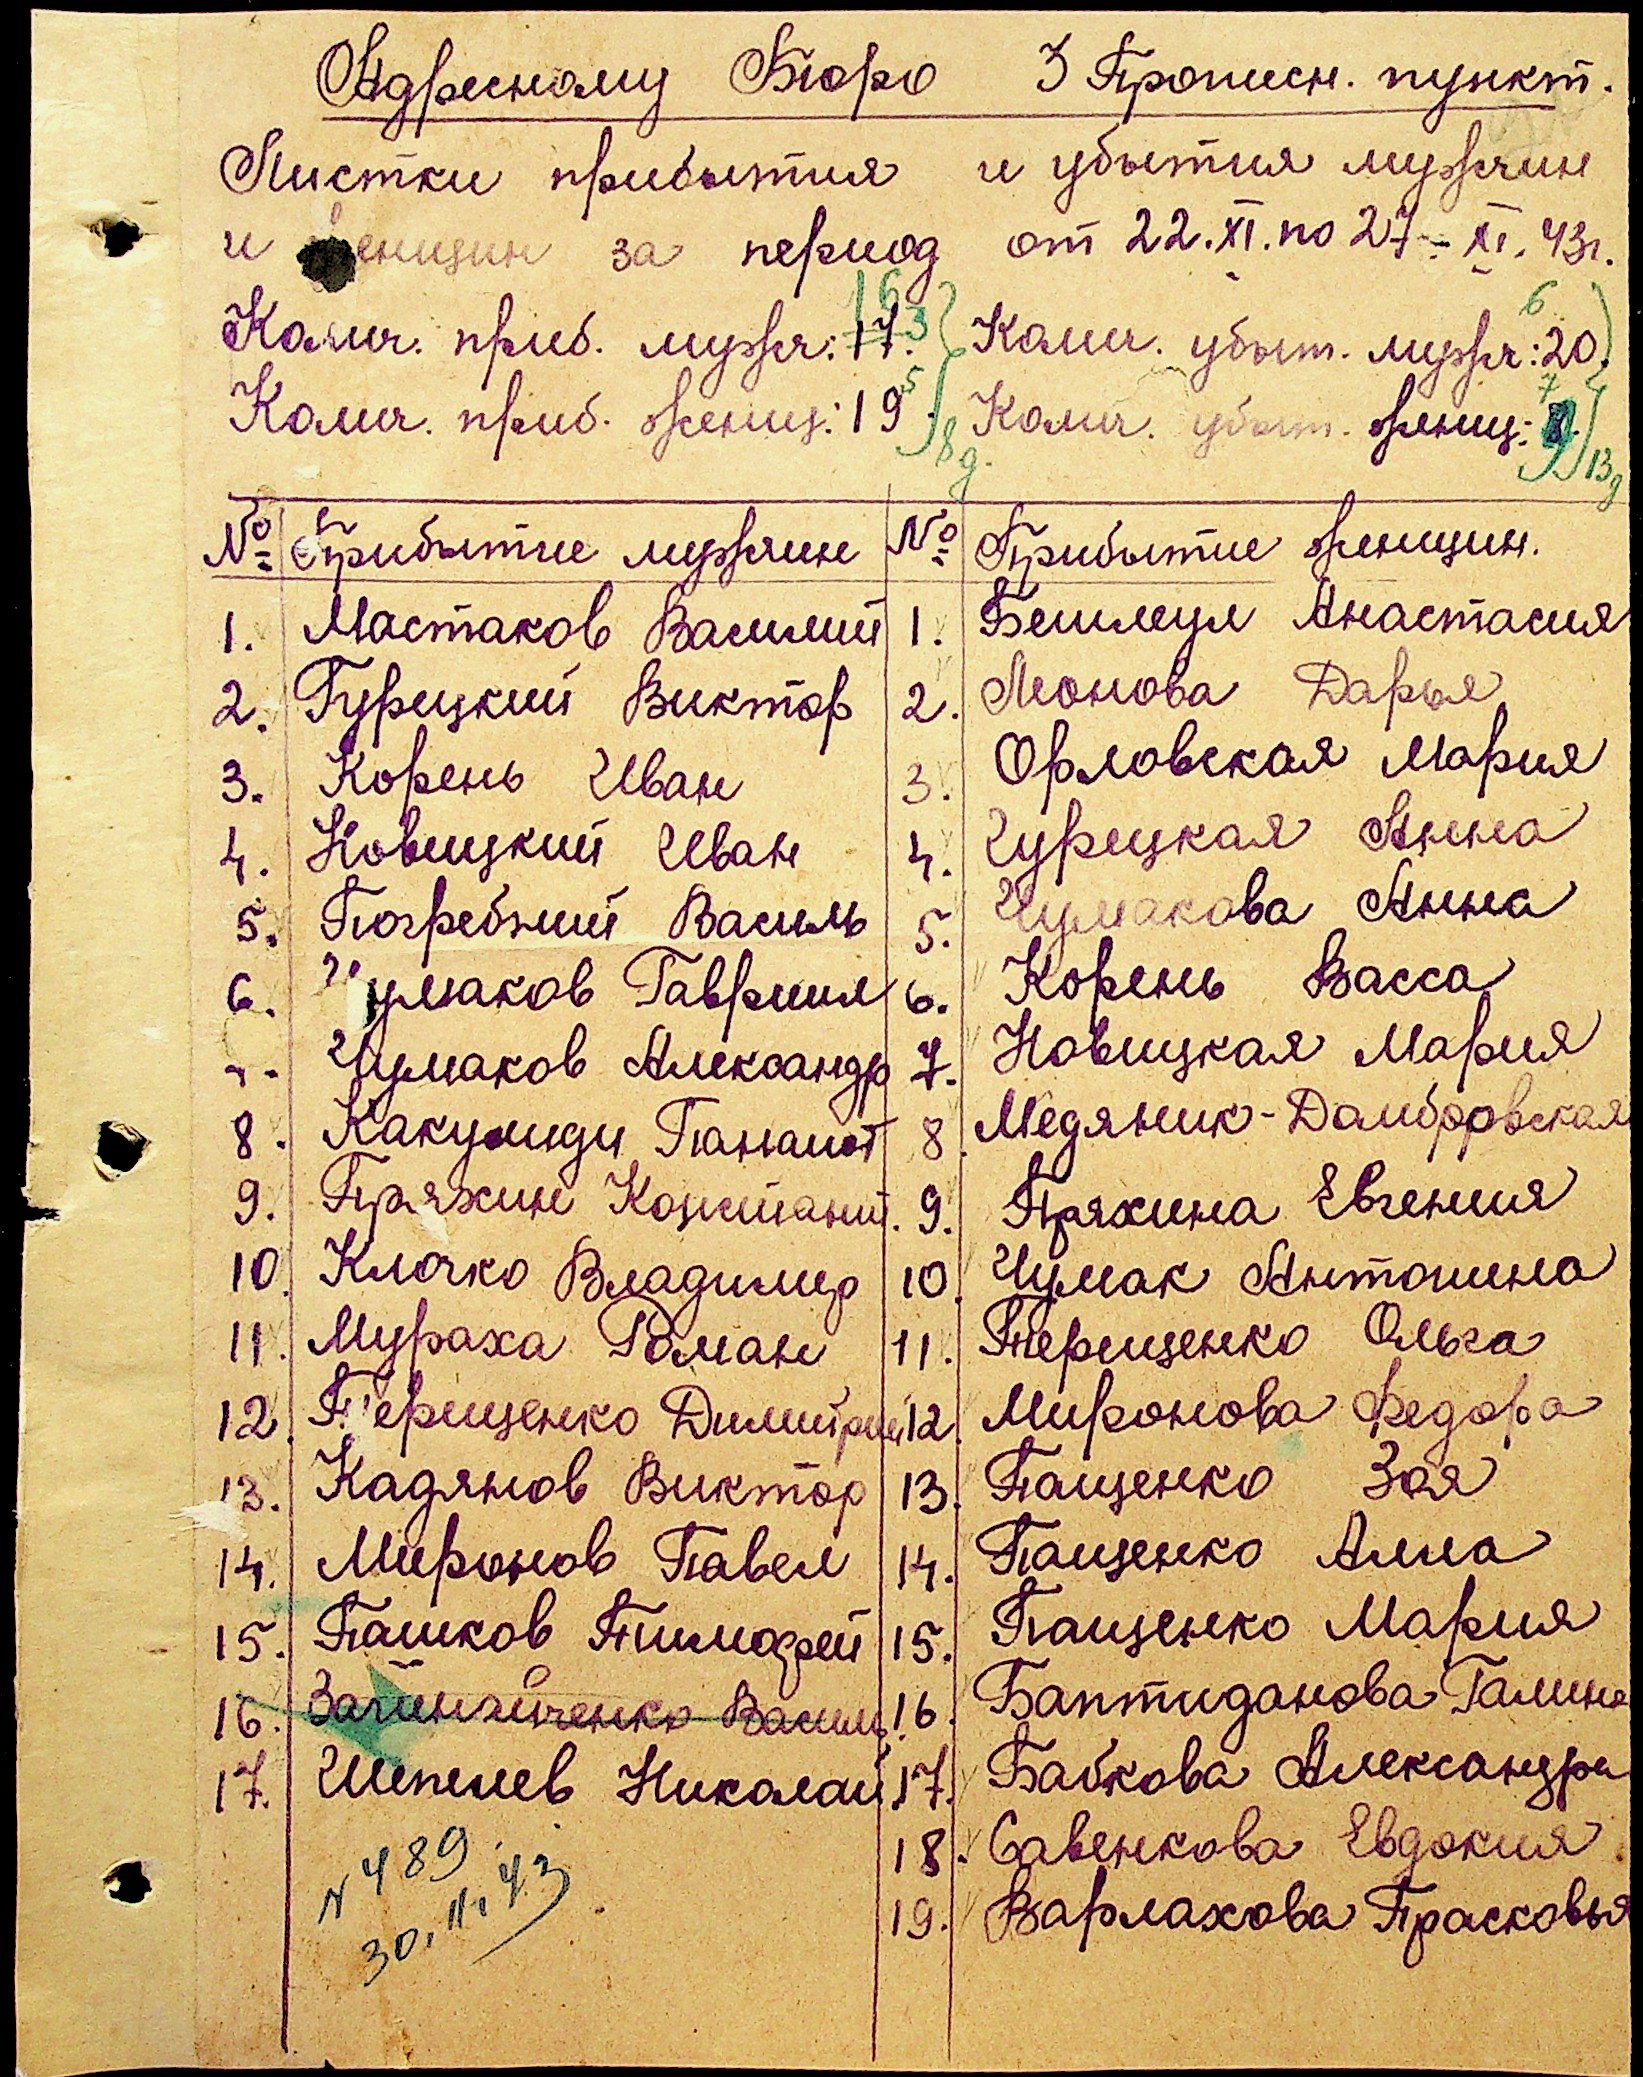 Адресному Бюро 3 Прописн. пункт.
Листки прибытия и убытия мужчин
и женщин за период от 22.XI. по 27-XI. 43г.
Колич. приб. мужч: 17. 16 3 Колич. убыт. мужч: 20. 6
Колич. приб. женщ: 19 5 8д. Колич. убыт. женщ: 7 13д
№ Прибытие мужчин № Прибытие женщин.
1. Мастаков Василий 1. Бешлеул Анастасия
2. Гурецкий Виктор 2. Леонова Дарья
3. Корень Иван 3. Орловская Мария
4. Новицкий Иван 4. Гурецкая Анна
5. Погребний Василь 5. Чумакова Анна
6. Чумаков Гавриил 6. Корень Васса
7. Чумаков Александр 7. Новицкая Мария
8. Какулиди Панаиот 8. Медяник-Домбровская
9. Пряхин Констант. 9. Пряхина Евгения
10. Клочко Владимир 10. Чумак Антонина
11. Мураха Роман 11. Терещенко Ольга
12. Терещенко Димитрий 12. Миронова Федора
13. Кадянов Виктор 13. Пащенко Зоя
14. Миронов Павел 14. Пащенко Алла
15. Пашков Тимофей 15. Пащенко Мария
16. Василь 16. Баптиданова Галина
17. Шепелев Николай 17. Бабкова Александра
18. Савенкова Евдокия
19. Варлахова Прасковья
N 489
30.11.43